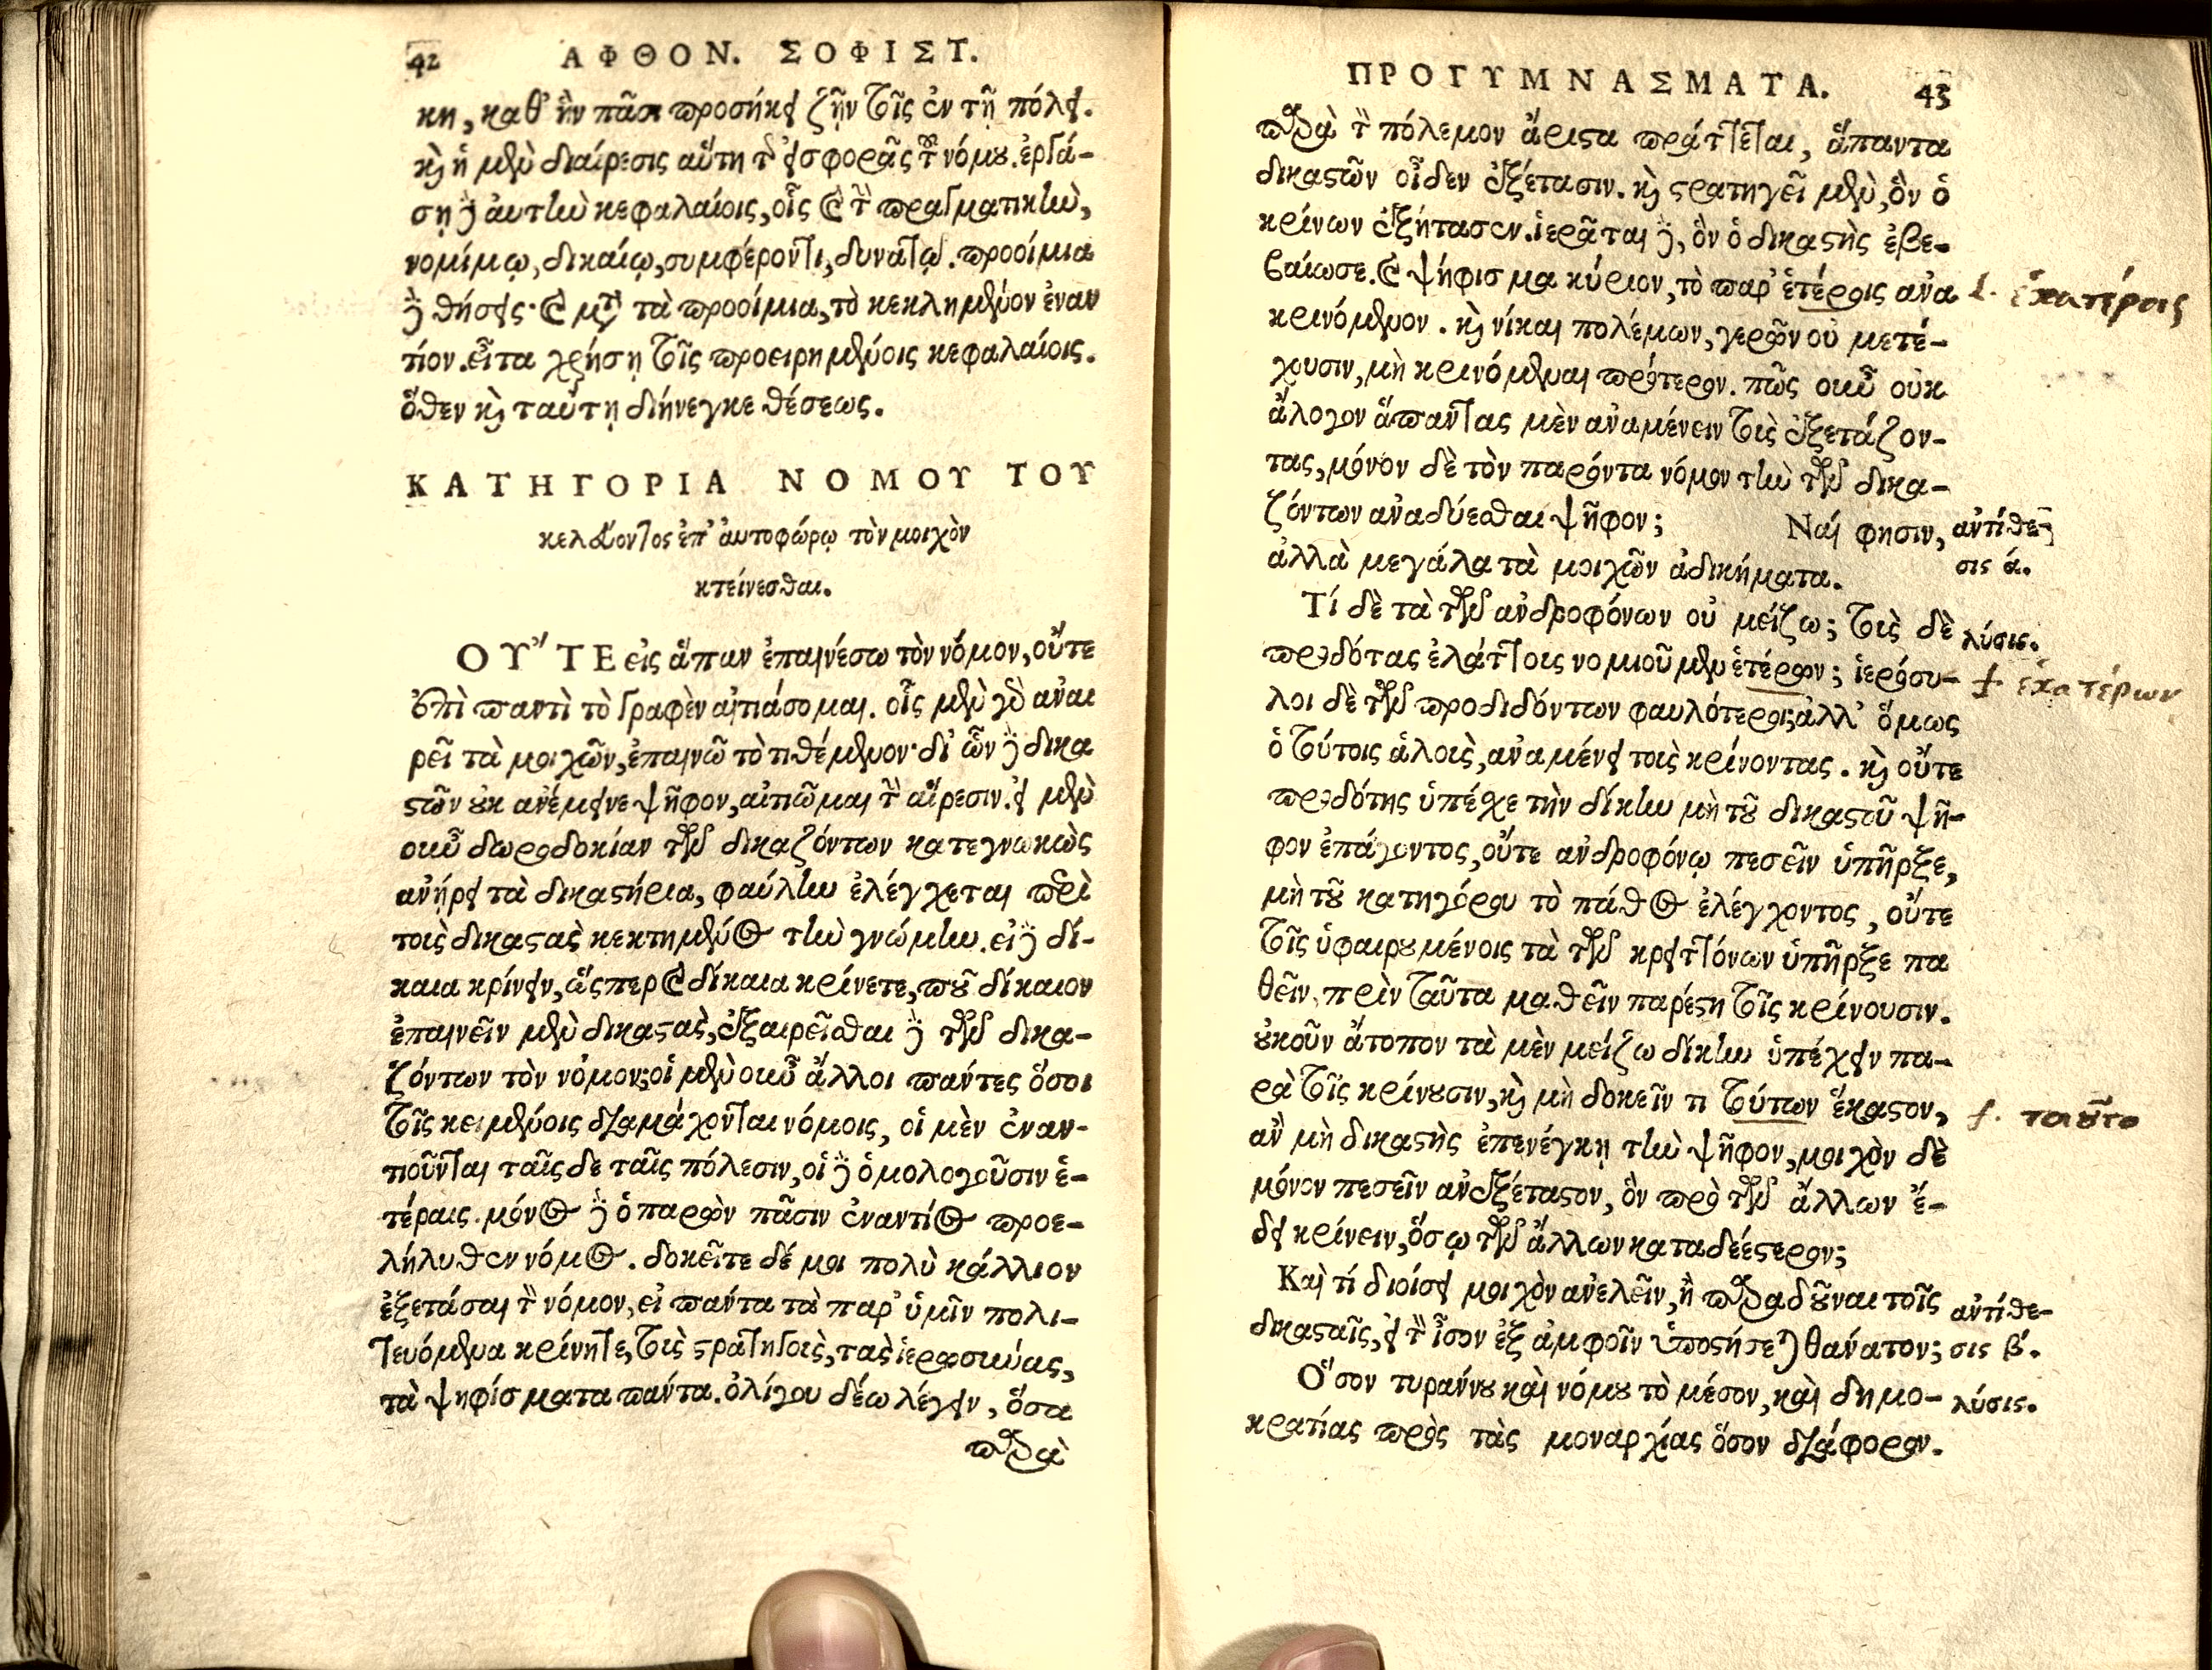 42 ΑΦΘΟΝ. ΣΟΦΙΣΤ.
κη, καθ' ἣν πᾶσι προσήκει ζῆν τοῖς ἐν τῇ πόλει.
καὶ ἡ μὲν διαίρεσις αὕτη τῆς εἰσφορᾶς τοῦ νόμου. ἐργά-
σῃ δὲ αὐτὴν κεφαλαίοις, οἷς καὶ τὴν πραγματικὴν,
νομίμῳ, δικαίῳ, συμφέροντι, δυνατῷ. προοίμια
δὲ θήσεις· καὶ μετὰ τὰ προοίμια, τὸ κεκλημένον ἐναν
τίον. εἶτα χρήσῃ τοῖς προειρημένοις κεφαλαίοις.
ὅθεν καὶ ταύτῃ διήνεγκε θέσεως.
ΚΑΤΗΓΟΡΙΑ ΝΟΜΟΥ ΤΟΥ
κελεύοντος ἐπ' αὐτοφώρῳ τὸν μοιχὸν
κτείνεσθαι.
ΟΥ῎ΤΕ εἰς ἅπαν ἐπαινέσω τὸν νόμον, οὔτε
ἐπὶ παντὶ τὸ γραφὲν αἰτιάσομαι. οἷς μὲν γὰρ ἀναι
ρεῖ τὰ μοιχῶν, ἐπαινῶ τὸ τιθέμενον· δι' ὧν δὲ δικα
στῶν οὐκ ἀνέμεινε ψῆφον, αἰτιῶμαι τὴν αἵρεσιν. εἰ μὲν
οὖν δωροδοκίαν τῶν δικαζόντων κατεγνωκὼς
ἀνῄρει τὰ δικαστήρια, φαύλην ἐλέγχεται περὶ
τοὺς δικαστὰς κεκτημένος τὴν γνώμην. εἰ δὲ δί-
καια κρίνειν, ὥσπερ καὶ δίκαια κρίνετε, ποῦ δίκαιον
ἐπαινεῖν μὲν δικαστὰς, ἐξαιρεῖσθαι δὲ τῶν δικα-
ζόντων τὸν νόμον; οἱ μὲν οὖν ἄλλοι πάντες ὅσοι
τοῖς κειμένοις διαμάχονται νόμοις, οἱ μὲν ἐναν-
τιοῦνται ταῖς δε ταῖς πόλεσιν, οἱ δὲ ὁμολογοῦσιν ἑ-
τέραις. μόνος δὲ ὁ παρὼν πᾶσιν ἐναντίος προε-
λήλυθεν νόμος. δοκεῖτε δέ μοι πολὺ κάλλιον
ἐξετάσαι τὸν νόμον, εἰ πάντα τὰ παρ' ὑμῖν πολι-
τευόμενα κρίνητε, τοὺς στρατηγοὺς, τὰς ἱερωσύνας,
τὰ ψηφίσματα πάντα. ὀλίγου δέω λέγειν, ὅσα
παρὰ
ΠΡΟΓΥΜΝΑΣΜΑΤΑ. 43
παρὰ τὸν πόλεμον ἄριστα πράττεται, ἅπαντα
δικαστῶν οἶδεν ἐξέτασιν. καὶ στρατηγεῖ μὲν, ὃν ὁ
κρίνων ἐξήτασεν. ἱερᾶται δὲ, ὃν ὁ δικαστὴς ἐβε-
βαίωσε. καὶ ψήφισμα κύριον, τὸ παρ' ἑτέροις ἀνα
ἑκατέροις
κρινόμενον. καὶ νίκαι πολέμων, γερῶν οὐ μετέ-
χουσιν, μὴ κρινόμεναι πρότερον. πῶς οὖν οὐκ
ἄλογον ἅπαντας μὲν ἀναμένειν τοὺς ἐξετάζον-
τας, μόνον δὲ τὸν παρόντα νόμον τὴν τῶν δικα-
ζόντων ἀναδύεσθαι ψῆφον; Ναί φησιν, ἀντίθε-
ἀλλὰ μεγάλα τὰ μοιχῶν ἀδικήματα. σις ά.
Τί δὲ τὰ τῶν ἀνδροφόνων οὐ μείζω; τοὺς δὲ λύσις.
προδότας ἐλάττοις νομιοῦμεν ἑτέρων; ἱερόσυ-
ἑκατέρων
λοι δὲ τῶν προδιδόντων φαυλότεροι; ἀλλ' ὅμως
ὁ τούτοις ἁλοὺς, ἀναμένει τοὺς κρίνοντας. καὶ οὔτε
προδότης ὑπέχε τὴν δίκην μὴ τοῦ δικαστοῦ ψῆ-
φον ἐπάγοντος, οὔτε ἀνδροφόνῳ πεσεῖν ὑπῆρξε,
μὴ τοῦ κατηγόρου τὸ πάθος ἐλέγχοντος, οὔτε
τοῖς ὑφαιρουμένοις τὰ τῶν κρειττόνων ὑπῆρξε πα
θεῖν, πρὶν ταῦτα μαθεῖν παρέστη τοῖς κρίνουσιν.
οὐκοῦν ἄτοπον τὰ μὲν μείζω δίκην ὑπέχειν πα-
ρὰ τοῖς κρίνουσιν, καὶ μὴ δοκεῖν τι τούτων ἕκαστον,
τοῦτο
ἂν μὴ δικαστὴς ἐπενέγκῃ τὴν ψῆφον, μοιχὸν δὲ
μόνον πεσεῖν ἀνεξέταστον, ὃν πρὸ τῶν ἄλλων ἔ-
δει κρίνειν, ὅσῳ τῶν ἄλλων καταδεέστερον;
Καὶ τί διοίσει μοιχὸν ἀνελεῖν, ἢ παραδοῦναι τοῖς ἀντίθε-
δικασταῖς, εἰ τὸν ἴσον ἐξ ἀμφοῖν ὑποστήσεται θάνατον; σις β́.
Ὅσον τυράννου καὶ νόμου τὸ μέσον, καὶ δημο- λύσις.
κρατίας πρὸς τὰς μοναρχίας ὅσον διάφορον.